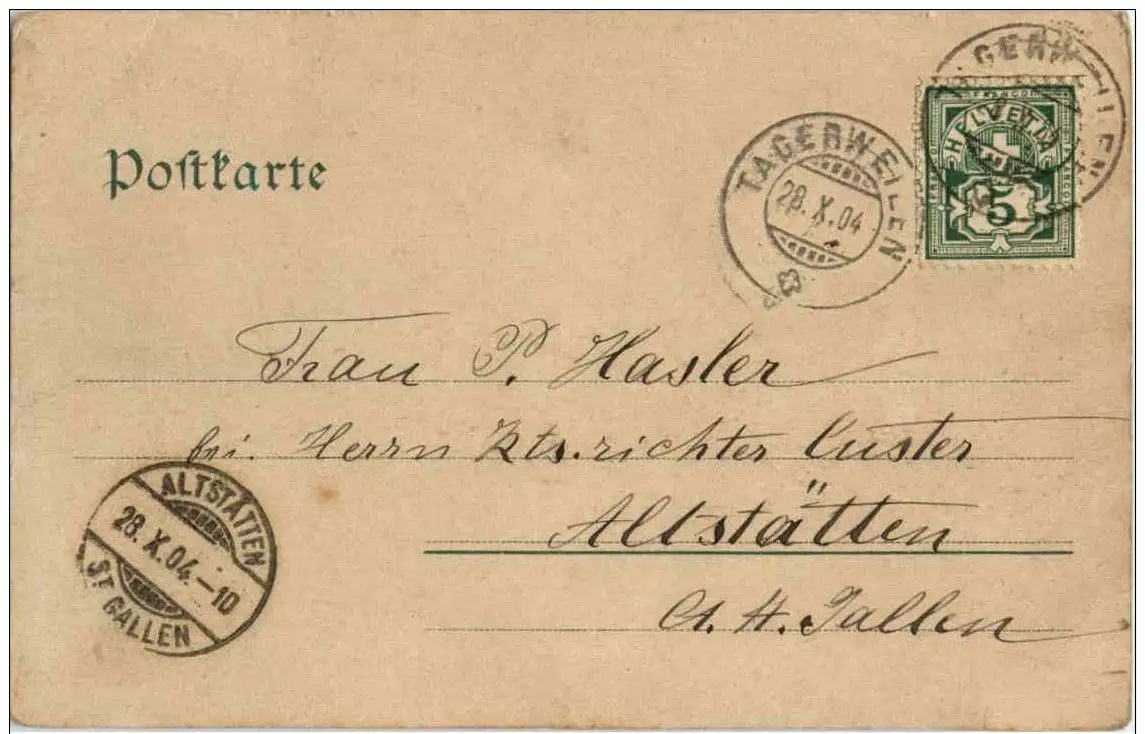 Postkarte
TÄGERWEILEN
28.X.04
FRANCO
HELVETIA
5
Frau P. Hasler
bei. Herrn Kts.richter Custer
Altstätten
Ct. St. Gallen
ALTSTÄTTEN
28.X.04.-10
ST GALLEN